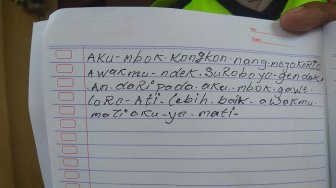 AKU-mbok Kongkon nang mojokerto
AwaKmu-ndek SuRoboyo-gendak
An dari pada aku mbok gawe
LoRo-Ati-Lebih baik awakmu
mati aku-ya mati-